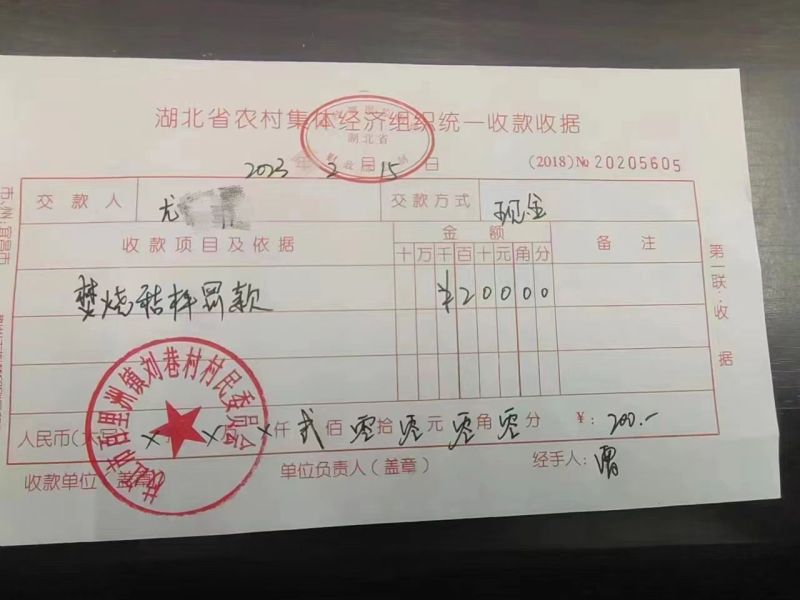 湖北省农村集体经济组织统一收款收据
湖北省
2023年2月15日
(2018)№ 20205605
交款人 尤
交款方式 现金
收款项目及依据 金额 备注
十万千百十元角分
焚烧秸秆罚款 ¥20000
第一联:收据
枝江市百里洲镇刘巷村村民委员会
人民币(大写) × × ×仟 贰佰 零拾 零元 零角 零分 ¥: 200.-
收款单位(盖章) 单位负责人(盖章) 经手人: